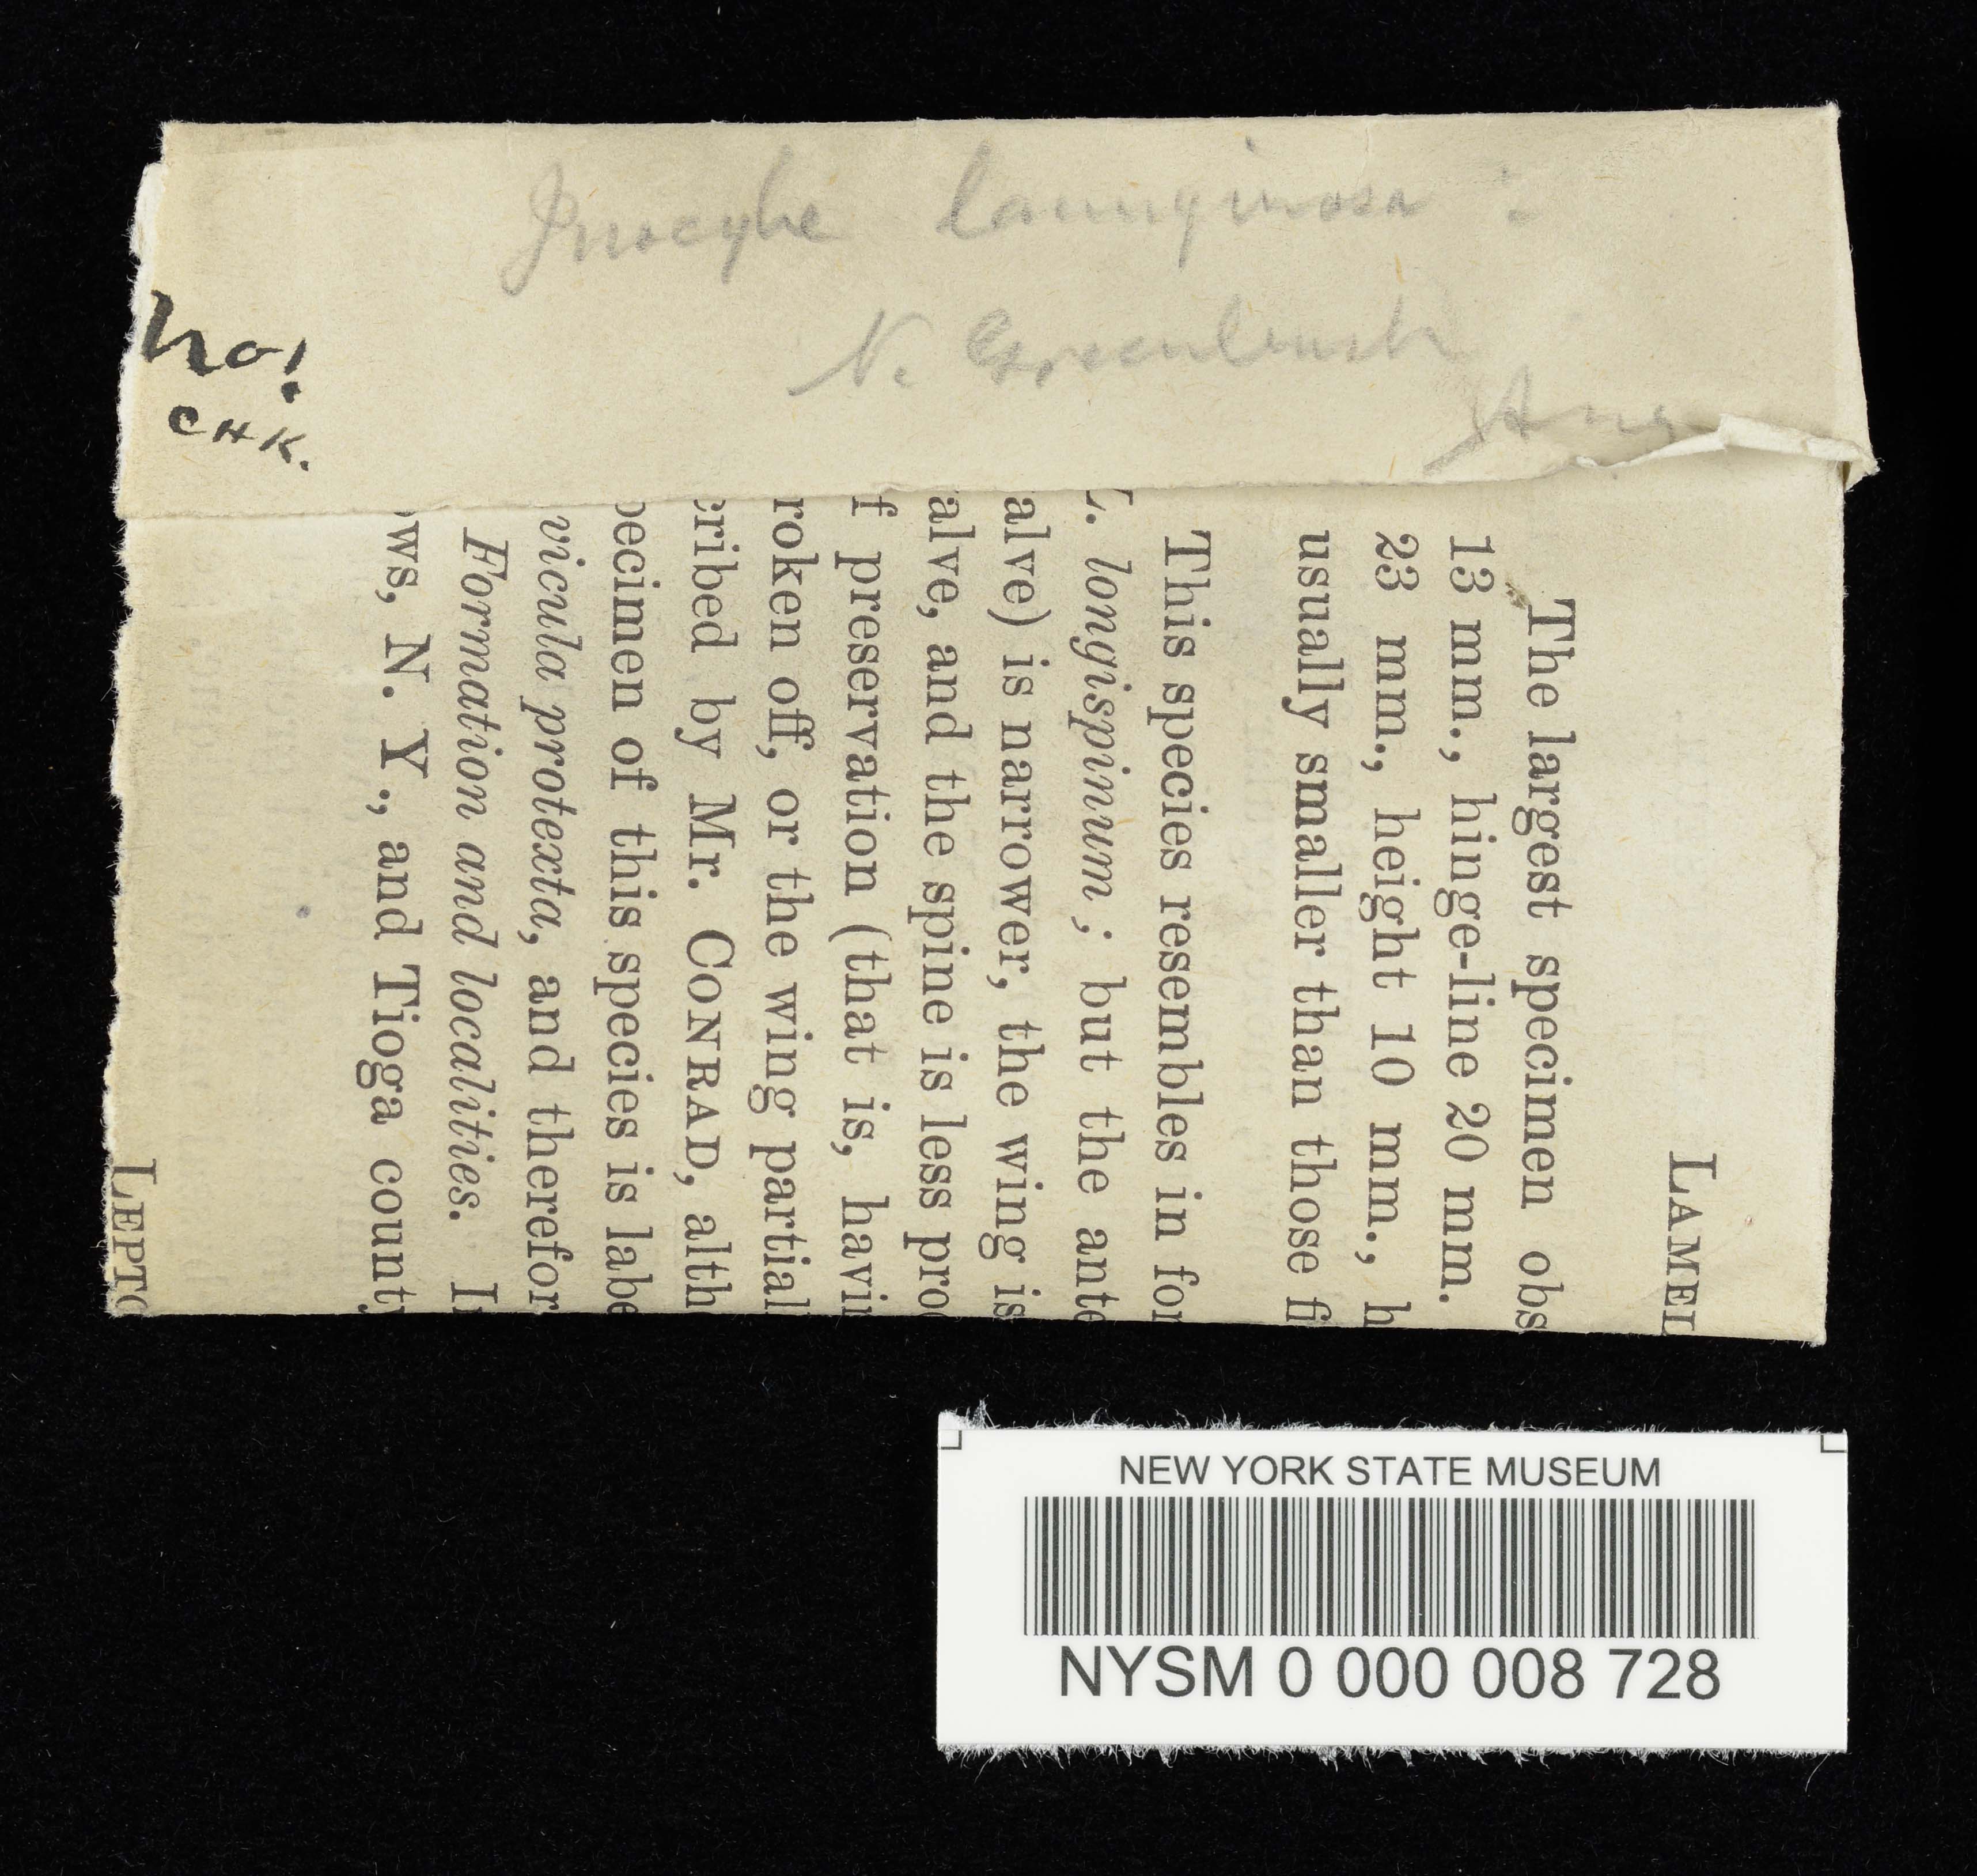 Inocybe lanuginosa ?
N. Greenbush
Aug
no!
CHK.
LAMEL
The largest specimen obs
13 mm., hinge-line 20 mm.
23 mm., height 10 mm., h
usually smaller than those fi
This species resembles in for
L. longispinum; but the ante
alve) is narrower, the wing is
alve, and the spine is less pro
f preservation (that is, havin
roken off, or the wing partial
cribed by Mr. CONRAD, alth
pecimen of this species is labe
vicula protexta, and therefor
Formation and localities. In
ows, N. Y., and Tioga county
LEPTO
NEW YORK STATE MUSEUM
NYSM 0 000 008 728